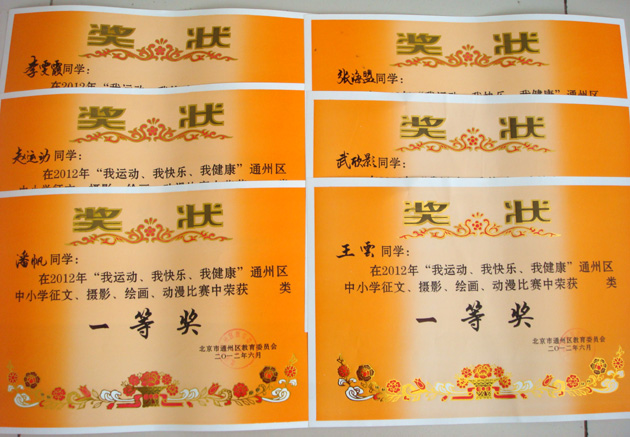 奖状
李雯霞同学:
在2012年“我运动、我快
奖状
张海盟同学:
奖状
赵运动同学:
在2012年“我运动、我快乐、我健康”通州区
中小学征文、摄影、绘画、动漫比赛中荣获 类
我快乐、我健康”通州区
奖状
武欣影同学:
奖状
潘帆同学:
在2012年“我运动、我快乐、我健康”通州区
中小学征文、摄影、绘画、动漫比赛中荣获 类
一等奖
北京市通州区教育委员会
二〇一二年六月
奖状
王雲同学:
在2012年“我运动、我快乐、我健康”通州区
中小学征文、摄影、绘画、动漫比赛中荣获 类
一等奖
北京市通州区教育委员会
二〇一二年六月